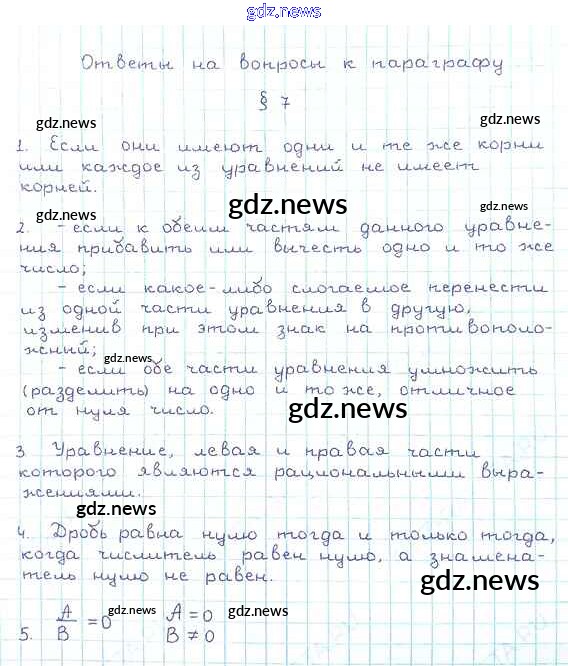 gdz.news
Ответы на вопросы к параграфу
§ 7
gdz.news
gdz.news
1. Если они имеют одни и те же корни
или каждое из уравнений не имеет
корней.
gdz.news
gdz.news
gdz.news
2. - если к обеим частям данного уравне-
ния прибавить или вычесть одно и то же
число;
- если какое-либо слогаемое перенести
из одной части уравнения в другую,
изменив при этом знак на противополо-
жный;
gdz.news
- если обе части уравнения умножить
(разделить) на одно и то же, отличное
от нуля число.
gdz.news
3 Уравнение, левая и правая части
которого являются рациональными выра-
жениями.
gdz.news
4. Дробь равна нулю тогда и только тогда,
когда числитель равен нулю, а знамена-
тель нулю не равен.
gdz.news
5. A/B = 0 gdz.news A = 0 gdz.news
B ≠ 0